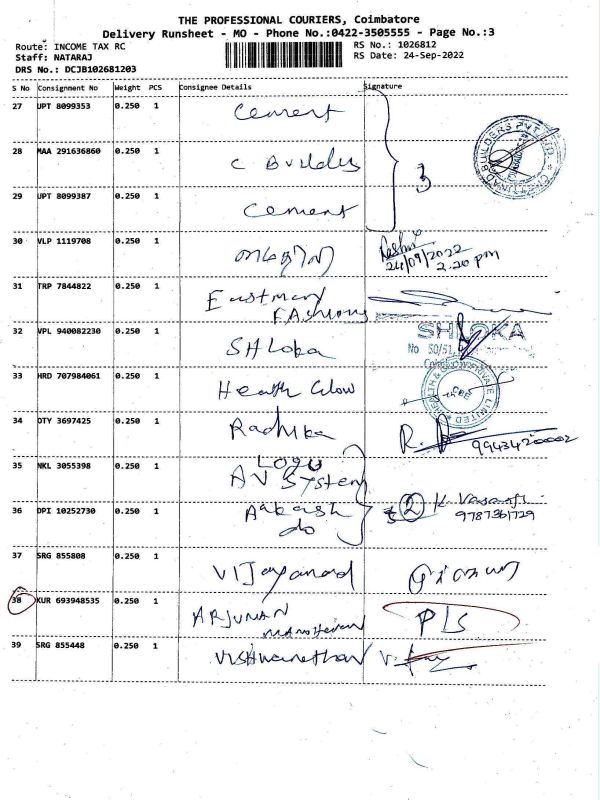 THE PROFESSIONAL COURIERS, Coimbatore
Delivery Runsheet - MO - Phone No.:0422-3505555 - Page No.:3
Route: INCOME TAX RC
Staff: NATARAJ
DRS No.: DCJB102681203
RS No.: 1026812
RS Date: 24-Sep-2022
S No Consignment No Weight PCS Consignee Details Signature
27 UPT 8099353 0.250 1 Cement
28 MAA 291636860 0.250 1 C Builders 3
29 UPT 8099387 0.250 1 Cement
30 VLP 1119708 0.250 1
24/09/2022
2.20 pm
31 TRP 7844822 0.250 1 Eastman
FAshions
32 VPL 940082230 0.250 1 SHloka SHLOKA
No 50/51
33 HRD 707984061 0.250 1 Health Glow
34 OTY 3697425 0.250 1 Radhika R.
9943420002
35 NKL 3055398 0.250 1 Logu
AV System
36 DPI 10252730 0.250 1 Aakash 2 K.
do 9787361729
37 SRG 855808 0.250 1 Vijayanand
38 KUR 693948535 0.250 1 ARJUNAN
Manoharan P/S
39 SRG 855448 0.250 1 Vishwanathan